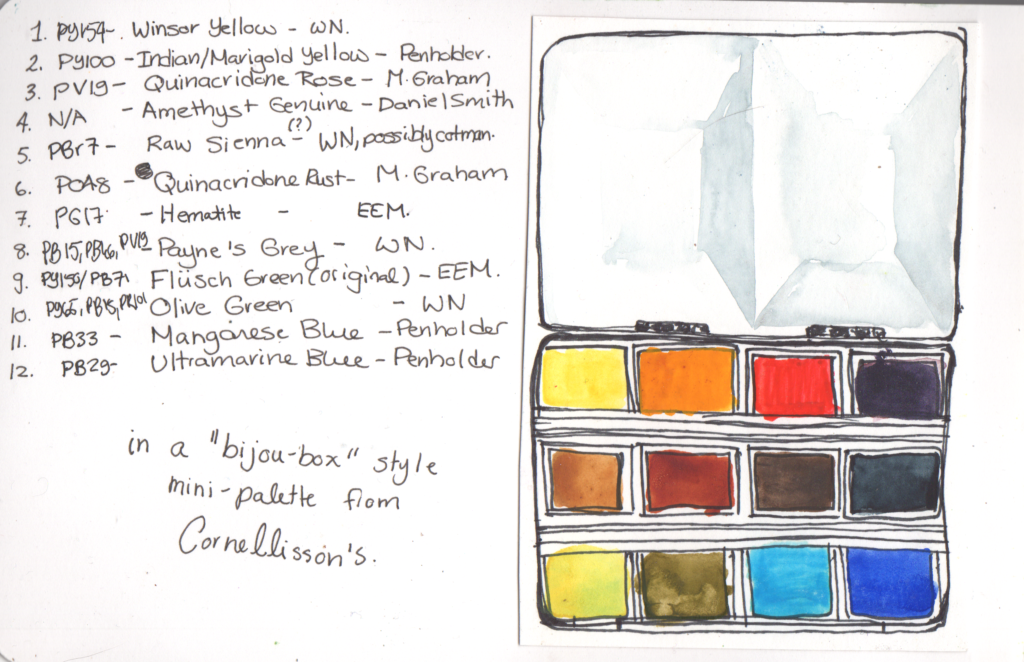 1. PY154- Winsor Yellow - WN.
2. PY100 - Indian/Marigold Yellow - Penholder.
3. PV19 - Quinacridone Rose - M. Graham
4. N/A - Amethyst Genuine - Daniel Smith
5. PBr7 - Raw Sienna (?) - WN, possibly cotman.
6. PO48 - Quinacridone Rust - M. Graham
7. PG17 - Hematite - EEM.
8. PB15, PBk6, PV19 - Payne's Grey - WN.
9. PY150/PB71 Flüsch Green (original) - EEM.
10. PY65, PB15, PR101 Olive Green - WN
11. PB33 - Manganese Blue - Penholder
12. PB29- Ultramarine Blue - Penholder
in a "bijou-box" style
mini-palette from
Cornellisson's.